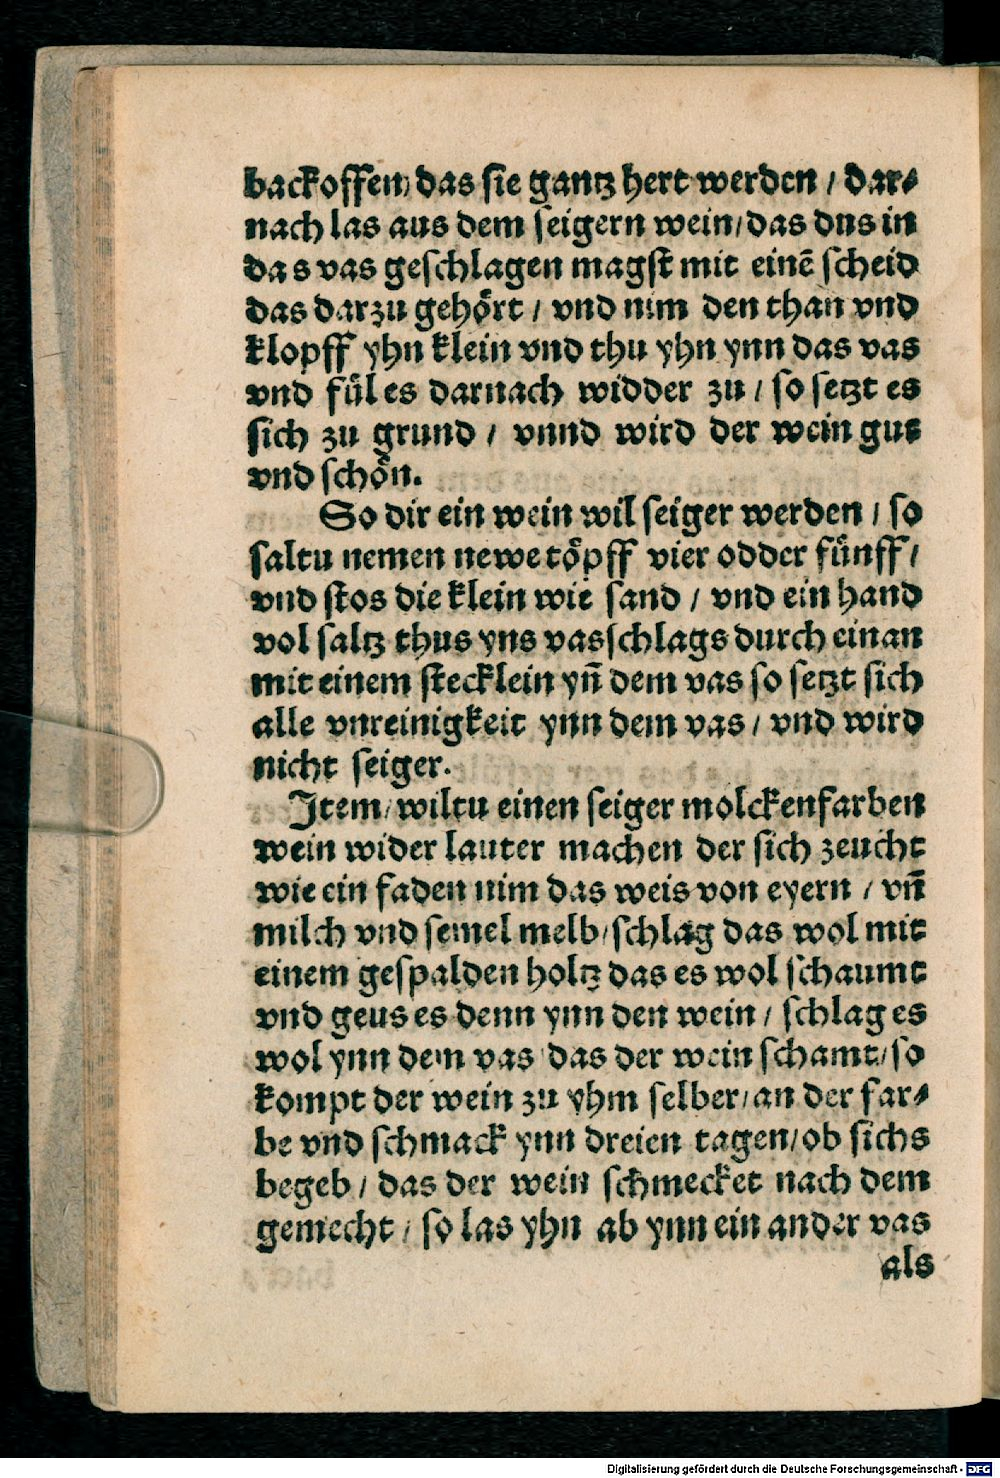 backoffen/ das sie gantz hert werden / dar⸗
nach las aus dem seigern wein/ das dus in
das vas geschlagen magst mit einē scheid
das darzu gehört / vnd nim den than vnd
klopff yhn klein vnd thu yhn ynn das vas
vnd fül es darnach widder zu / so setzt es
sich zu grund / vnnd wird der wein gut
vnd schön.
So dir ein wein wil seiger werden / so
saltu nemen newe töpff vier odder fünff /
vnd stos die klein wie sand / vnd ein hand
vol saltz thus yns vas schlags durch einan
mit einem stecklein yñ dem vas so setzt sich
alle vnreinigkeit ynn dem vas / vnd wird
nicht seiger.
Item/ wiltu einen seiger molckenfarben
wein wider lauter machen der sich zeucht
wie ein faden nim das weis von eyern / vñ
milch vnd semel melb/ schlag das wol mit
einem gespalden holtz das es wol schaumt
vnd geus es denn ynn den wein / schlag es
wol ynn dem vas das der wein schamt/ so
kompt der wein zu yhm selber/ an der far⸗
be vnd schmack ynn dreien tagen/ ob sichs
begeb / das der wein schmecket nach dem
gemecht / so las yhn ab ynn ein ander vas
als
Digitalisierung gefördert durch die Deutsche Forschungsgemeinschaft - DFG